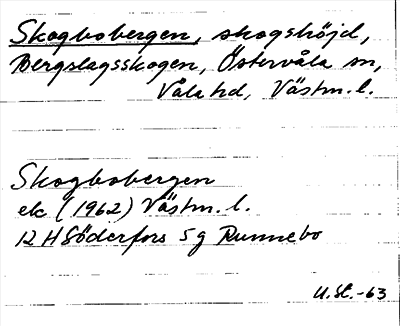 Skogbobergen, skogshöjd,
Bergslagsskogen, Östervåla sn,
Våla hd, Västm. l.
Skogbobergen
ek (1962) Västm. l.
12 H Söderfors 5 g Runnebo
U. St. -63